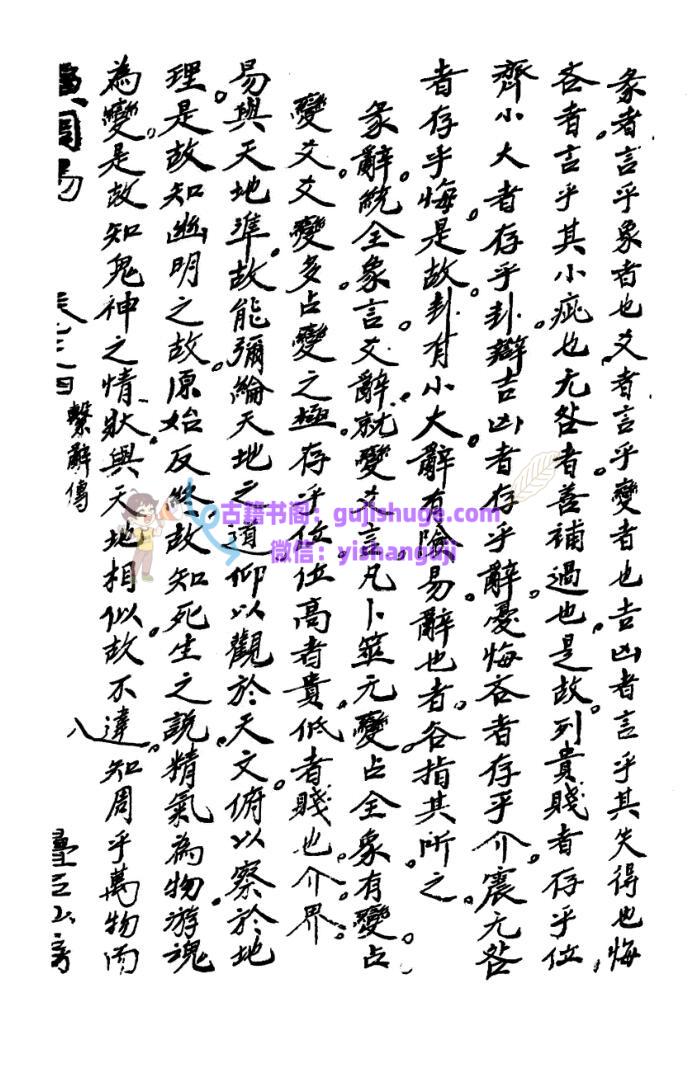 彖者言乎象者也。爻者言乎變者也。吉凶者言乎其失得也。悔
吝者言乎其小疵也。无咎者善補過也。是故列貴賤者存乎位。
齊小大者存乎卦。辯吉凶者存乎辭。憂悔吝者存乎介。震无咎
者存乎悔。是故卦有小大。辭有險易。辭也者。各指其所之。
彖辭統全象言。爻辭就變爻言。凡卜筮无變。占全彖。有變。占
變爻。爻變多。占變之極。存乎位。位高者貴。低者賤也。介。界。
易與天地準。故能彌綸天地之道。仰以觀於天文。俯以察於地
理。是故知幽明之故。原始反終。故知死生之說。精氣為物。游魂
為變。是故知鬼神之情狀。與天地相似。故不違。知周乎萬物而
周易 卷之四 繫辭傳 八 山房
古籍书阁：gujishuge.com
微信：yishanguji